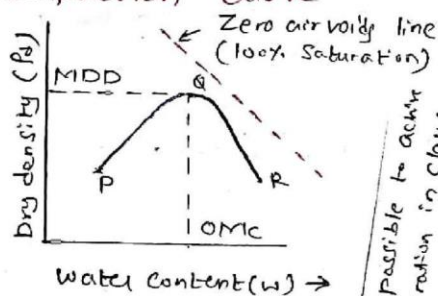 Zero air voids line
(100% Saturation)
MDD
Q
Dry density (ρd)
P
R
OMC
Water content (w) →
possible to achive
ration in clay